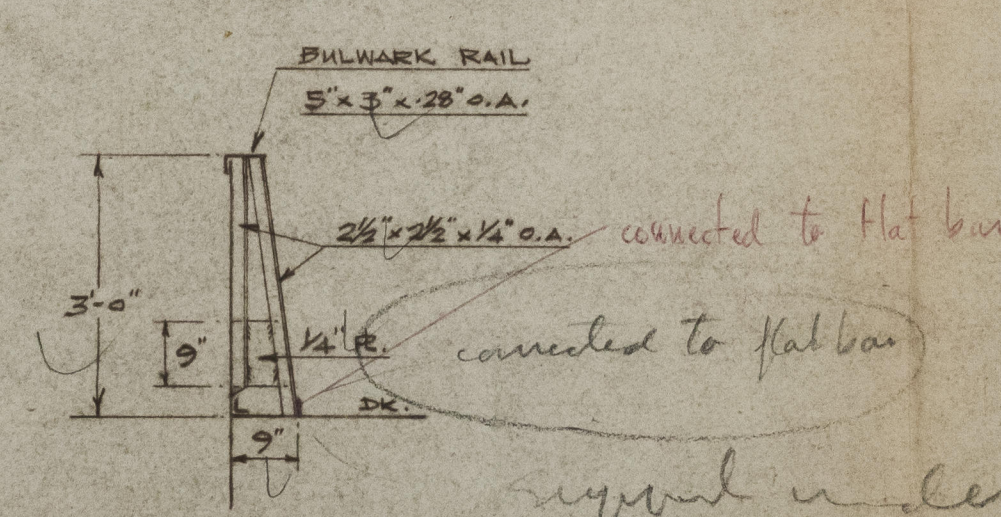 BULWARK RAIL
5" x 3" x .28" O.A.
2½" x 2½" x ¼" O.A.
connected to flat bar
3'-0"
9"
¼" PL.
connected to flat bar
DK.
9"
support under